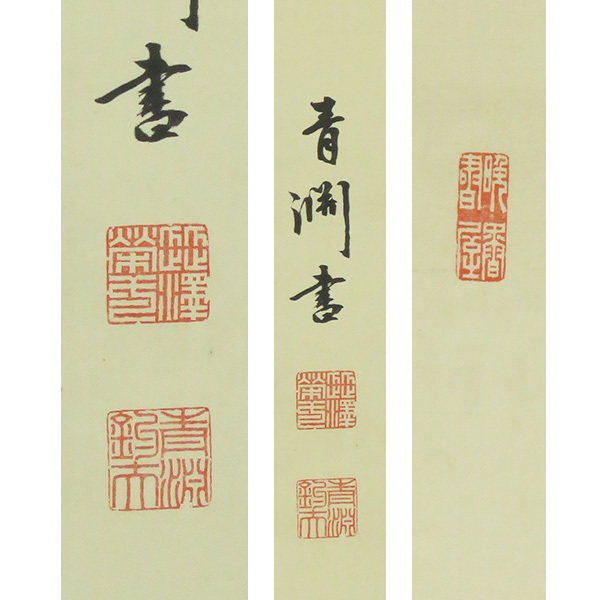 書
澁澤
榮一
青淵
青淵書
澁澤
榮一
青淵
晩香
書屋